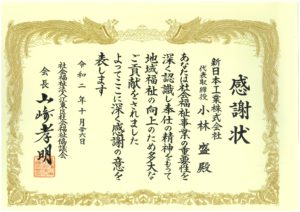 感謝状
新日本工業株式会社
代表取締役 小林 盛殿
あなたは社会福祉事業の重要性を
深く認識し奉仕の精神をもって
地域福祉の向上のため多大な
ご貢献をされました
よってここに深く感謝の意を
表します
令和二年十月廿六日
社会福祉法人江東区社会福祉協議会
会長 山﨑孝明